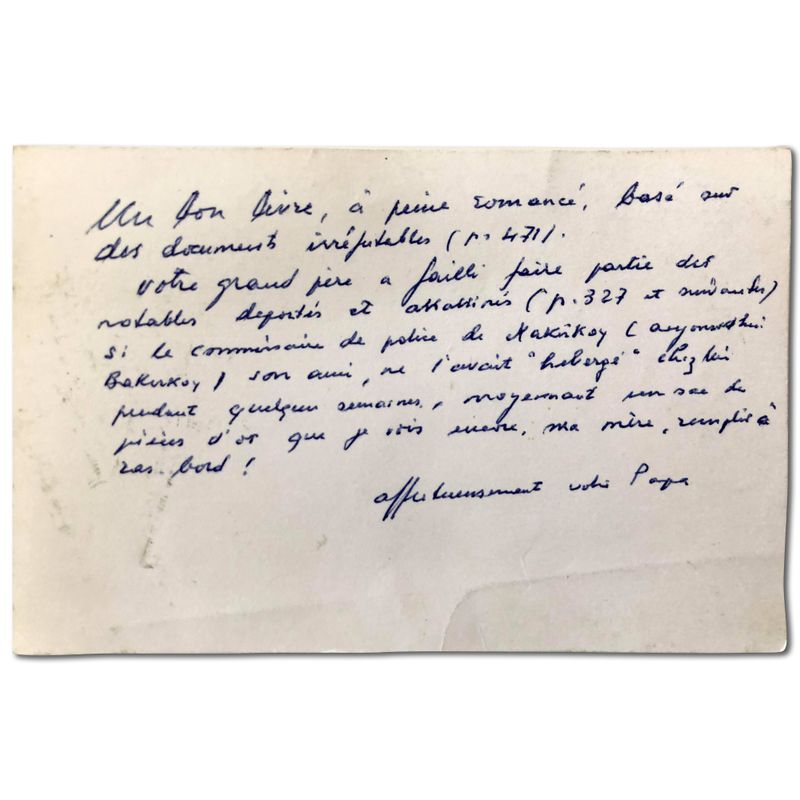 Un bon livre, à peine romancé, basé sur
des documents irréfutables (p. 471).
votre grand père a failli faire partie des
notables deportés et assassinés (p. 327 et suivantes)
si le commissaire de police de Makrikoy (aujourd'hui
Bakirkoy) son ami, ne l'avait "hebergé" chez lui
pendant quelques semaines, moyennant un sac de
pièces d'or que je vois encore, ma mère, remplir à
ras bord !
affectueusement votre Papa